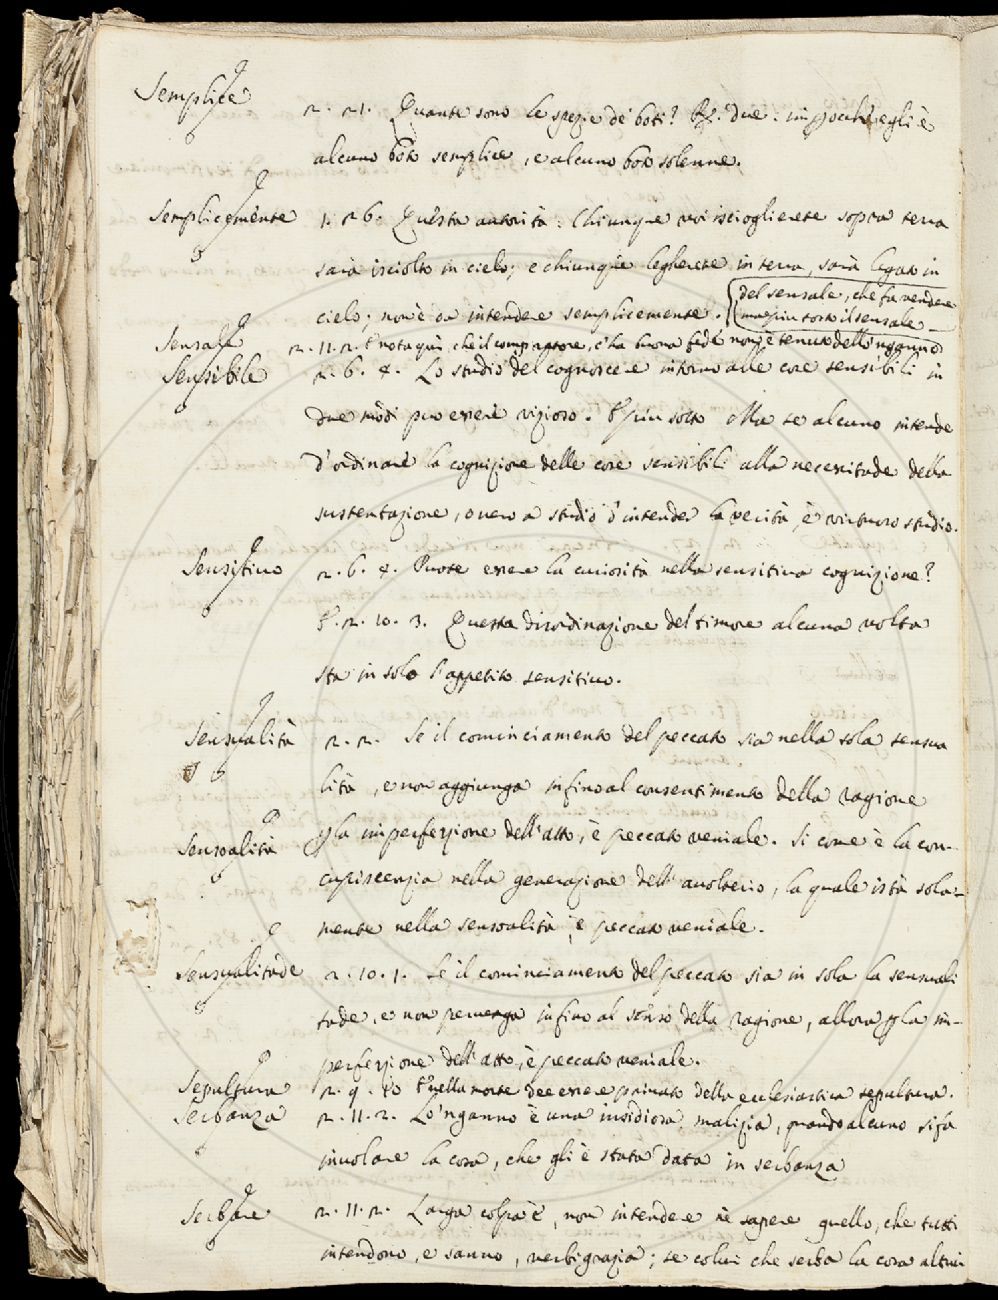 Semplice
2. 21. Quante sono le spezie de' boti? R. due: impocchè egli è
alcuno boto semplice, e alcuno boto solenne.
Semplicemente 1. 26. Questa autorità: Chiunque voi isciogliente sopra terra
sarà isciolto in cielo; e chiunque legherete in terra, sarà legato in
cielo; non è da intendere semplicemente.
del sensale, che fa vendere
piu tosto il sensale
Sensale 2. 11. 2. E nota qui che il compratore, c'ha buona fede non è tenuto dello 'nganno
Sensibile 2. 6. 4. Lo studio del cognoscere intorno alle cose sensibili in
due modi puo essere vizioso. E piu sotto Ma se alcuno intende
d'ordinare la cognizione delle cose sensibili alla necessitade della
sustentazione, ovvero a studio d'intender la verità, è virtuoso studio.
Sensitivo 2. 6. 4. Puote essere la curiosità nella sensitiva cognizione?
E. 2. 10. 3. Questa disordinazione del timore alcuna volta
sta in solo l'appetito sensitivo.
Sensualità 2. 2. Se il cominciamento del peccato sia nella sola sensua
lità, e non aggiunga infino al consentimento della ragione
Sensoalità p la imperfezione dell'atto, è peccato veniale. Si come è la con-
cupiscenzia nella generazione dell'avolterio, la quale istà sola-
mente nella sensoalità, è peccato veniale.
Sensualitade 2. 10. 1. Se il cominciamento del peccato sia in sola la sensuali
tade, e non pervenga infino al senso della ragione, allora p la im-
perfezione dell'atto, è peccato veniale.
Sepultura 2. 9. 10 E nella morte dee essere privato della ecclesiastica sepultura.
Serbanza 2. 11. 2. Lo 'nganno è una insidiosa malizia, quando alcuno si fa
involare la cosa, che gli è stata data in serbanza
Serbare 2. 11. 2. Larga colpa è, non intendere nè sapere quello, che tutti
intendono, e sanno, verbigrazia; se colui che serba la cosa altrui